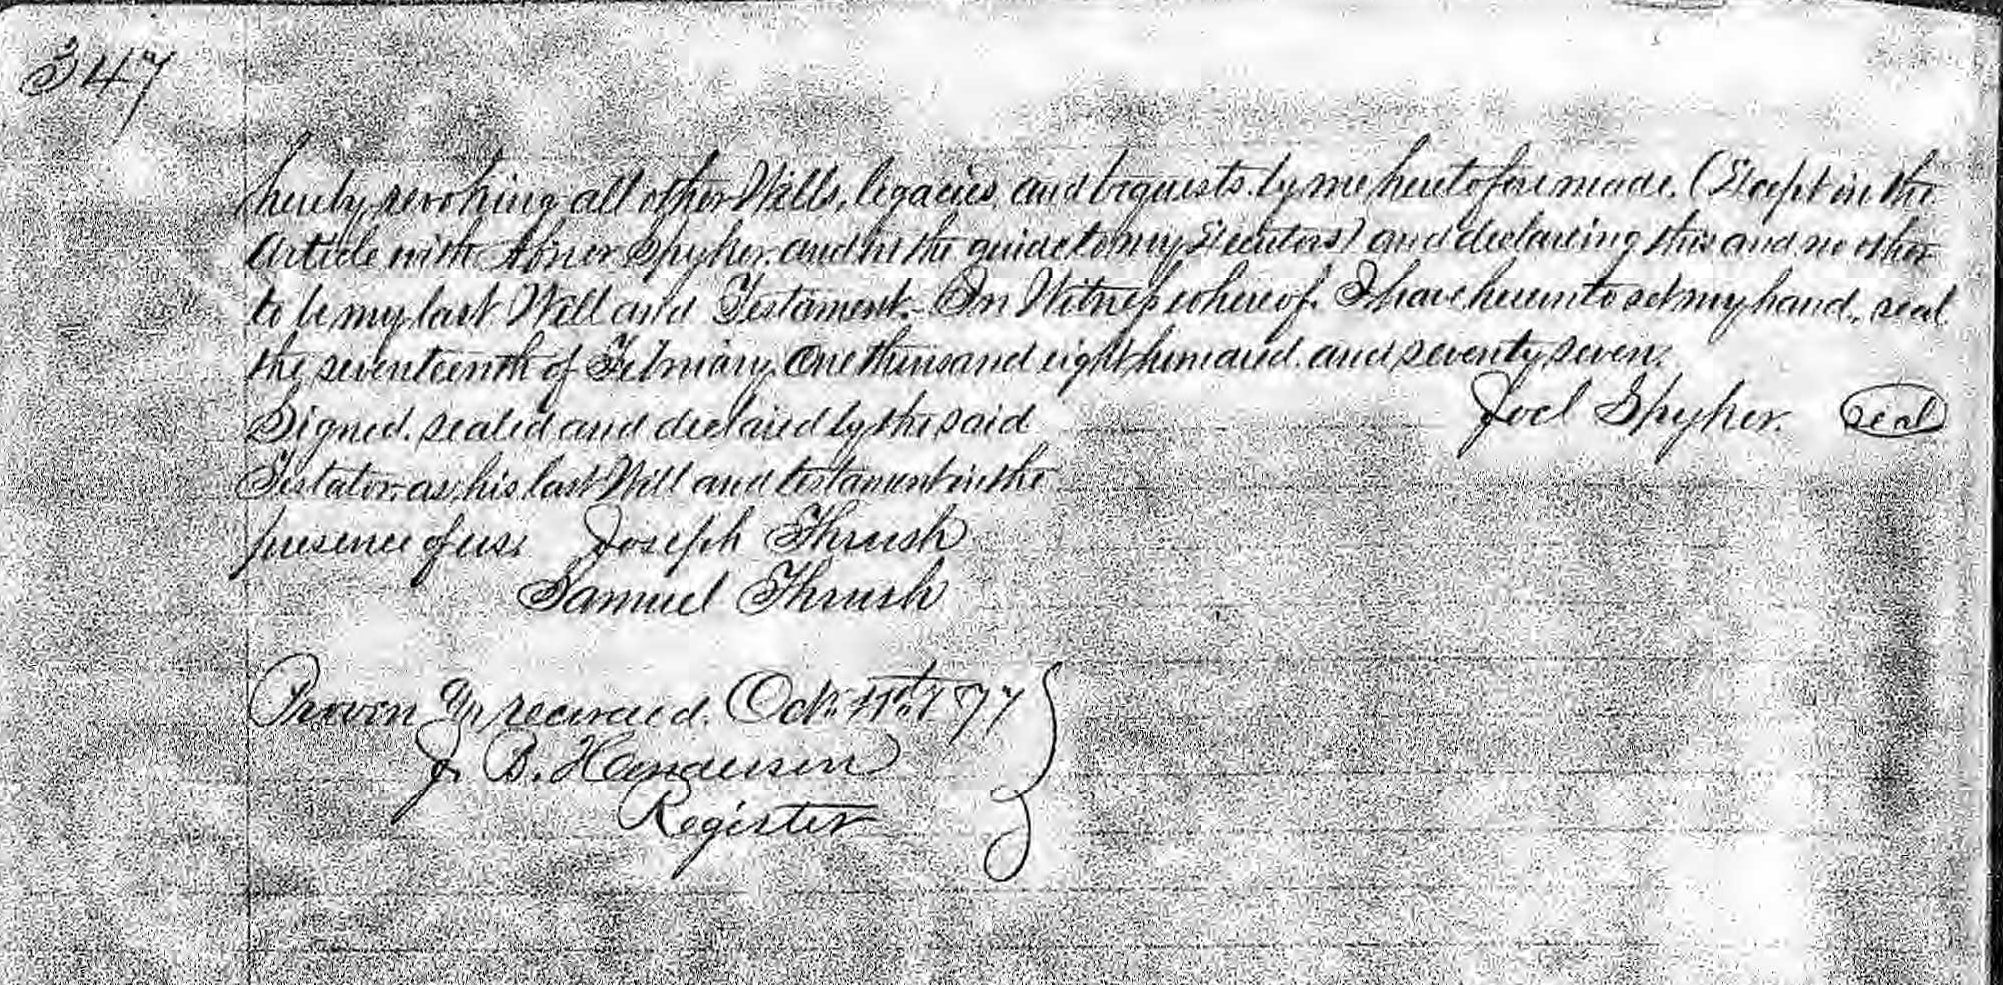 347
hereby revoking all other Wills, legacies, and bequests by me heretofore made. (Except in the
Article with Abner Spyker and in the guide to my Executors) and declaring this and no other
to be my last Will and Testament. In Witness whereof I have hereunto set my hand, seal
the seventeenth of February One thousand eight hundred and seventy seven.
Joel Spyker. Seal
Signed, sealed and declared by the said
Testator, as his last Will and testament in the
presence of us. Joseph Thrush
Samuel Thrush
Proven & recorded. Oct. 1877
J. B. Henderson
Register